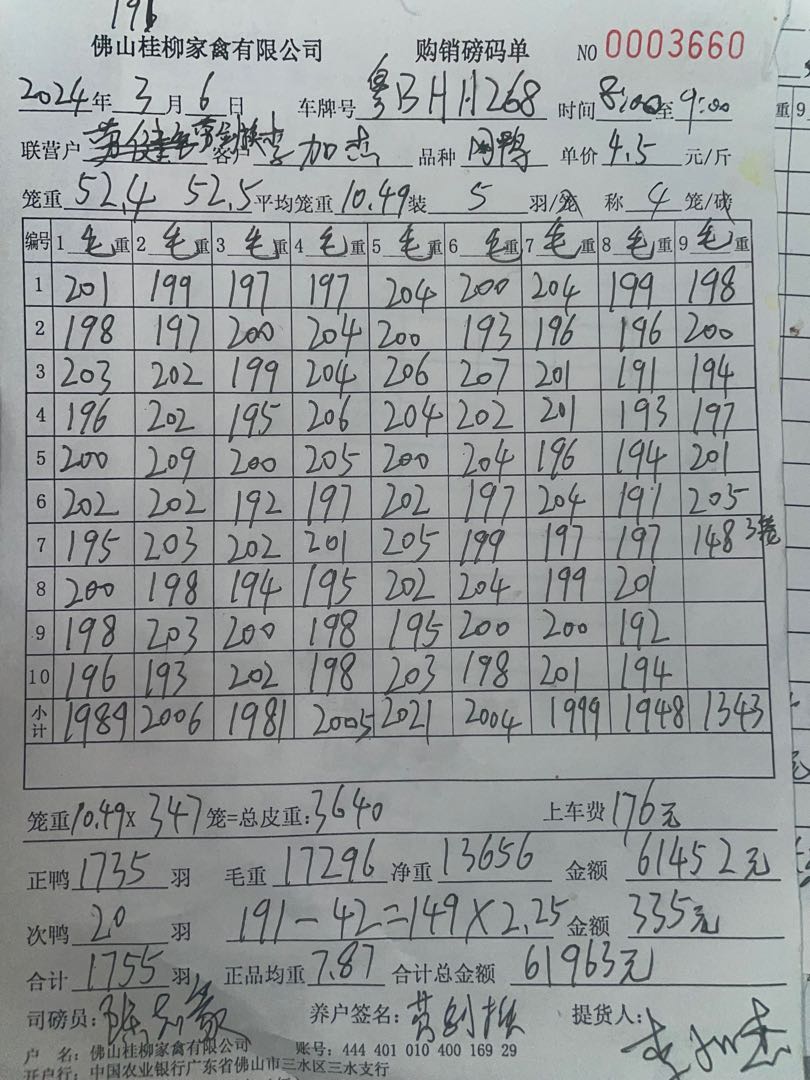 196
佛山桂柳家禽有限公司 购销磅码单 NO 0003660
2024年3月6日 车牌号 粤BHH268 时间 8:00至9:00
联营户 客户 李加杰 品种 肉鸭 单价 4.5 元/斤
笼重 52.4 52.5 平均笼重 10.49 装 5 羽/笼 称 4 笼/磅
编号 1 毛重 2 毛重 3 毛重 4 毛重 5 毛重 6 毛重 7 毛重 8 毛重 9 毛重
1 201 199 197 197 204 200 204 199 198
2 198 197 200 204 200 193 196 196 200
3 203 202 199 204 206 207 201 191 194
4 196 202 195 206 204 202 201 193 197
5 200 209 200 205 200 204 196 194 201
6 202 202 192 197 202 197 204 191 205
7 195 203 202 201 205 199 197 197 148 3笼
8 200 198 194 195 202 204 199 201
9 198 203 200 198 195 200 200 192
10 196 193 202 198 203 198 201 194
小计 1989 2006 1981 2005 2021 2004 1999 1948 1343
笼重 10.49 × 347 笼=总皮重: 3640 上车费 176元
正鸭 1735 羽 毛重 17296 净重 13656 金额 61452元
次鸭 20 羽 191-42=149×2.25 金额 335元
合计 1755 羽 正品均重 7.87 合计总金额 61963元
司磅员: 养户签名: 提货人: 李加杰
户 名: 佛山桂柳家禽有限公司 账号: 444 401 010 400 169 29
开户行: 中国农业银行广东省佛山市三水区三水支行
重 9